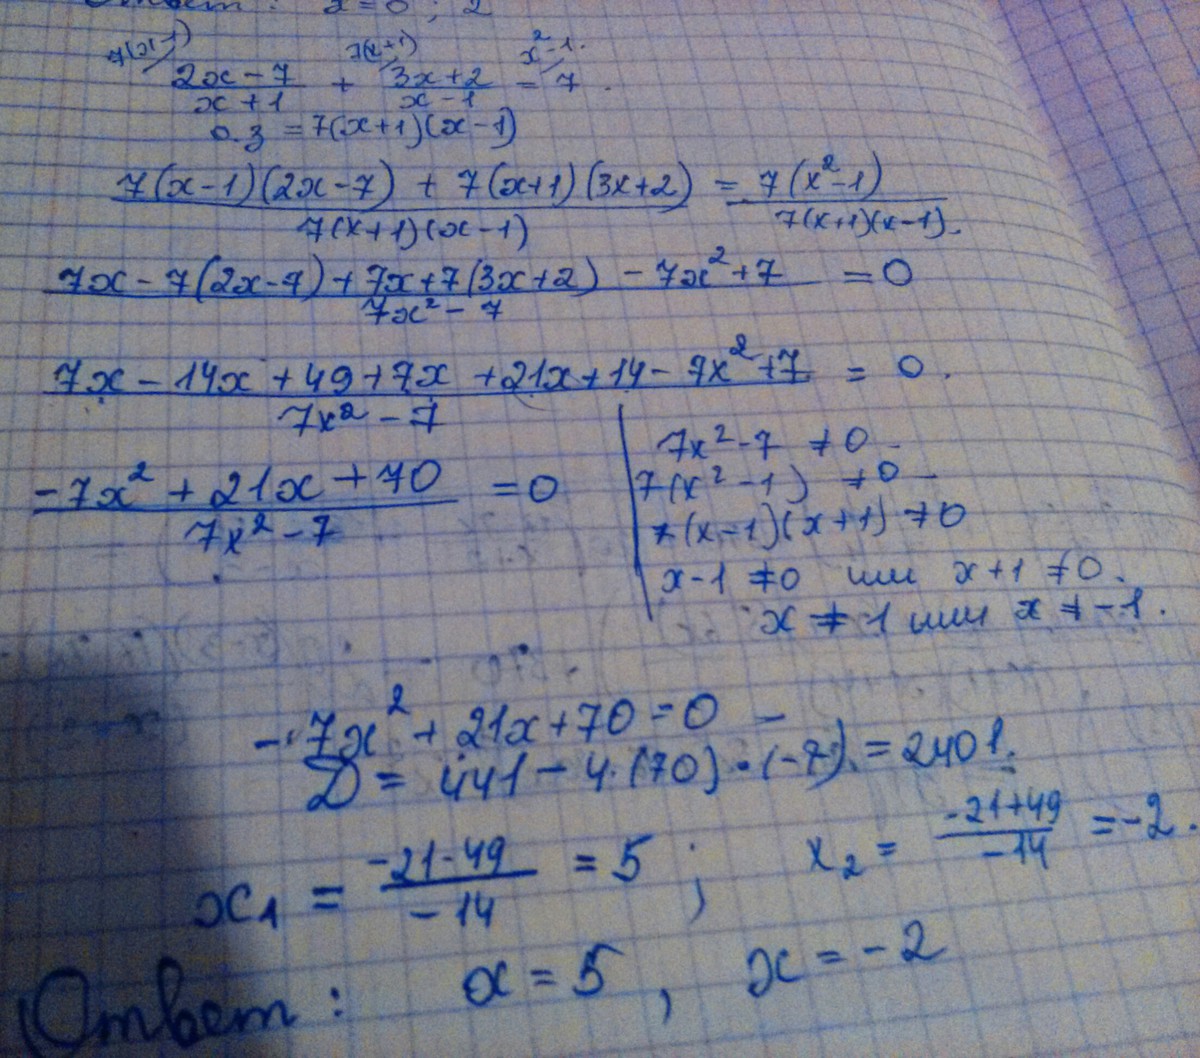 Ответ: x = 0 ; 2
7(x-1) 7(x+1) x²-1.
(2x-7)/(x+1) + (3x+2)/(x-1) = 7.
О.З = 7(x+1)(x-1)
(7(x-1)(2x-7) + 7(x+1)(3x+2))/(7(x+1)(x-1)) = (7(x²-1))/(7(x+1)(x-1)).
(7x - 7(2x-7) + 7x+7(3x+2) - 7x²+7)/(7x² - 7) = 0
(7x - 14x + 49 + 7x + 21x + 14 - 7x² + 7)/(7x² - 7) = 0.
(-7x² + 21x + 70)/(7x² - 7) = 0
7x² - 7 ≠ 0
7(x² - 1) ≠ 0
7(x-1)(x+1) ≠ 0
x-1 ≠ 0 или x+1 ≠ 0.
x ≠ 1 или x ≠ -1.
-7x² + 21x + 70 = 0
D = 441 - 4·(70)·(-7) = 2401.
x₁ = (-21-49)/(-14) = 5 ; x₂ = (-21+49)/(-14) = -2.
Ответ: x = 5, x = -2